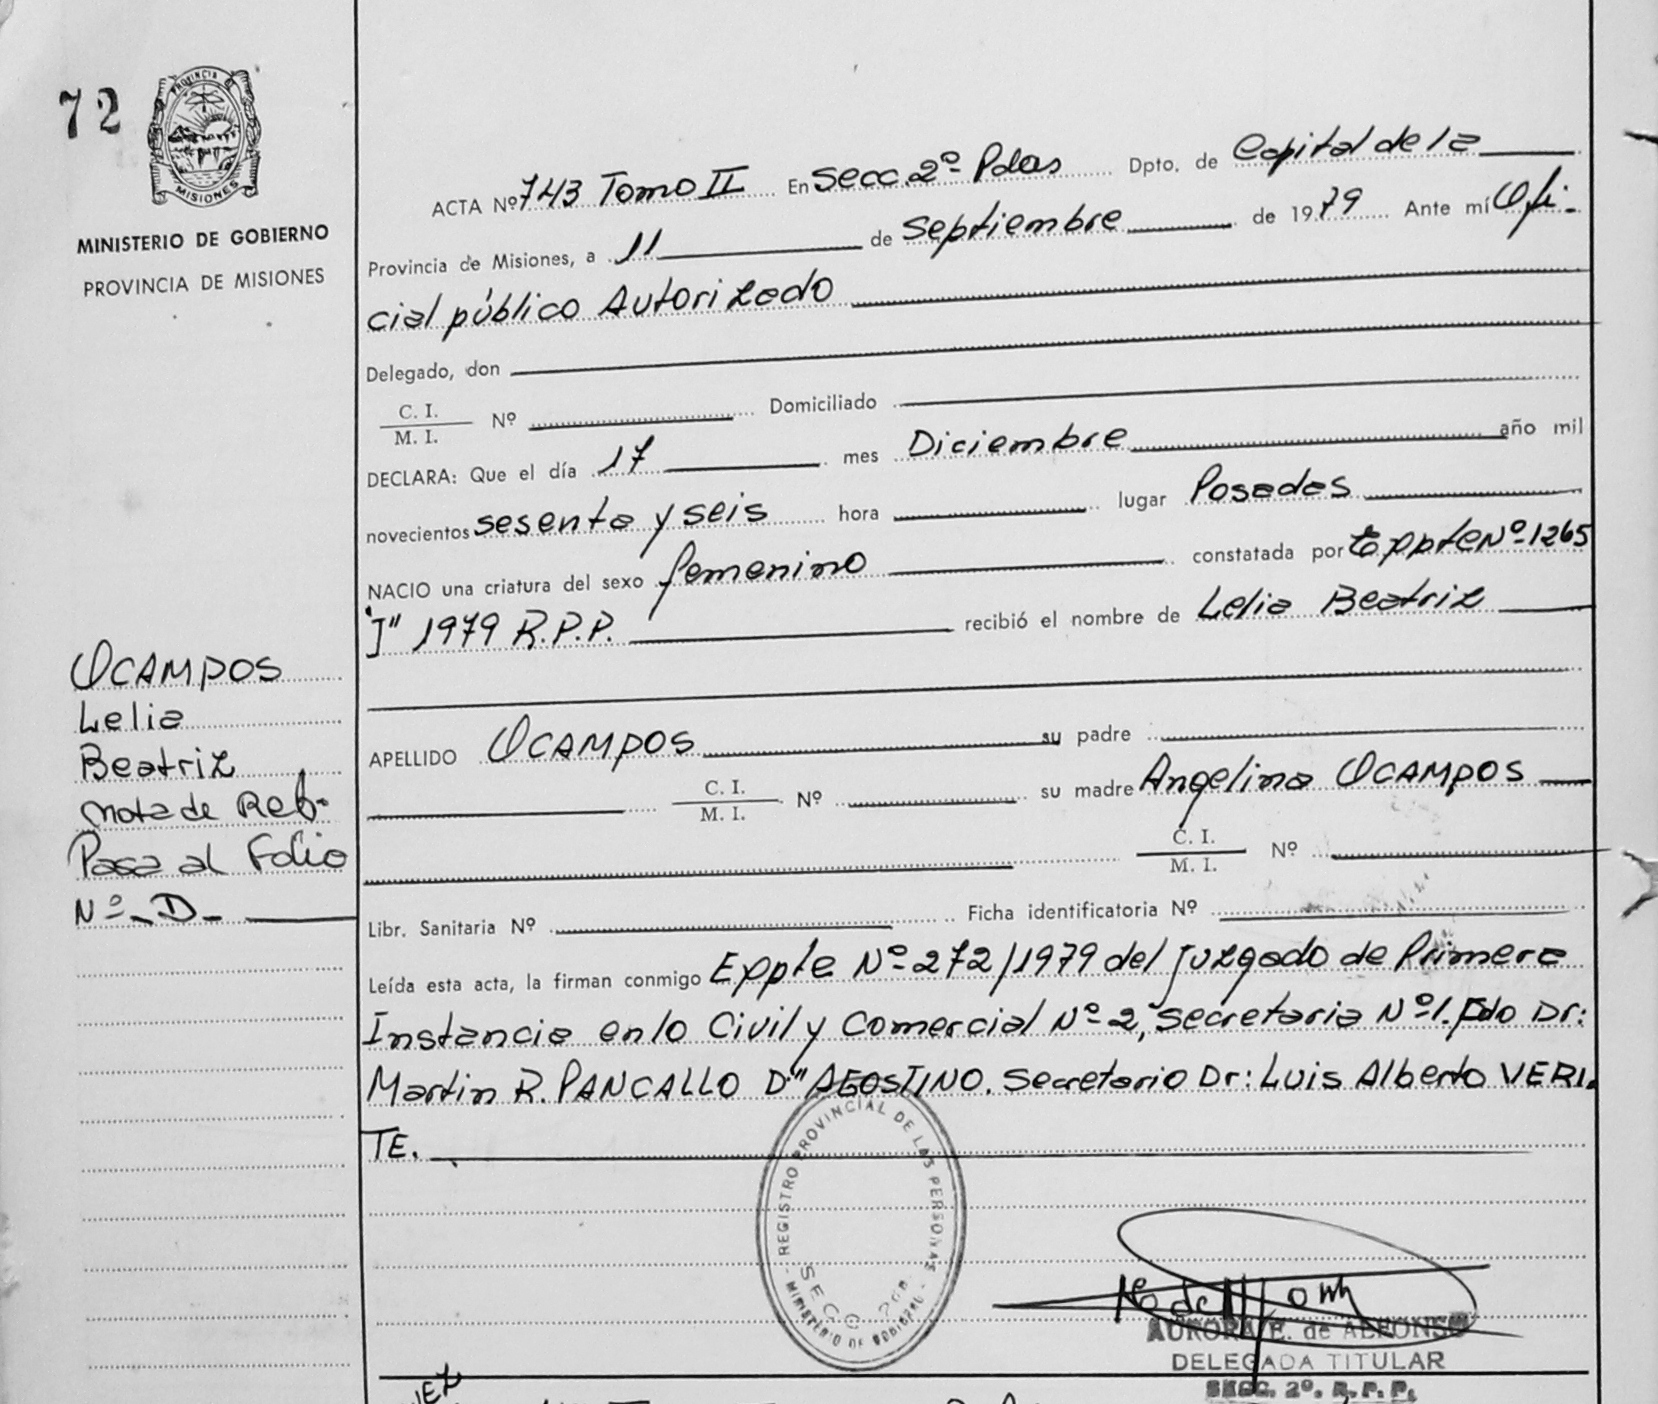 72
PROVINCIA DE
MISIONES
MINISTERIO DE GOBIERNO
PROVINCIA DE MISIONES
ACTA Nº 743 Tomo II En Secc. 2º Pdas Dpto. de Capital de la
Provincia de Misiones, a 11 de septiembre de 1979 Ante mí Ofi-
cial público Autorizado
Delegado, don
C. I.
M. I. Nº Domiciliado
DECLARA: Que el día 17 mes Diciembre año mil
novecientos sesenta y seis hora lugar Posadas
NACIO una criatura del sexo femenino constatada por Eppte Nº 1265
"J" 1979 R.P.P. recibió el nombre de Lelia Beatriz
OCAMPOS
Lelia
Beatriz
nota de Ref.
Pasa al Folio
Nº - D -
APELLIDO OCAMPOS su padre
C. I.
M. I. Nº su madre Angelina OCAMPOS
C. I.
M. I. Nº
Libr. Sanitaria Nº Ficha identificatoria Nº
Leída esta acta, la firman conmigo Eppte Nº 272/1979 del Juzgado de Primera
Instancia en lo Civil y Comercial Nº 2, Secretaria Nº 1. Fdo Dr:
Martin R. PANCALLO D" AGOSTINO. Secretario Dr: Luis Alberto VERI
TE.
REGISTRO PROVINCIAL DE LAS PERSONAS
MINISTERIO DE GOBIERNO
SECC. 2da
AURORA E. de ALFONSO
DELEGADA TITULAR
SECC. 2º. R. P. P.